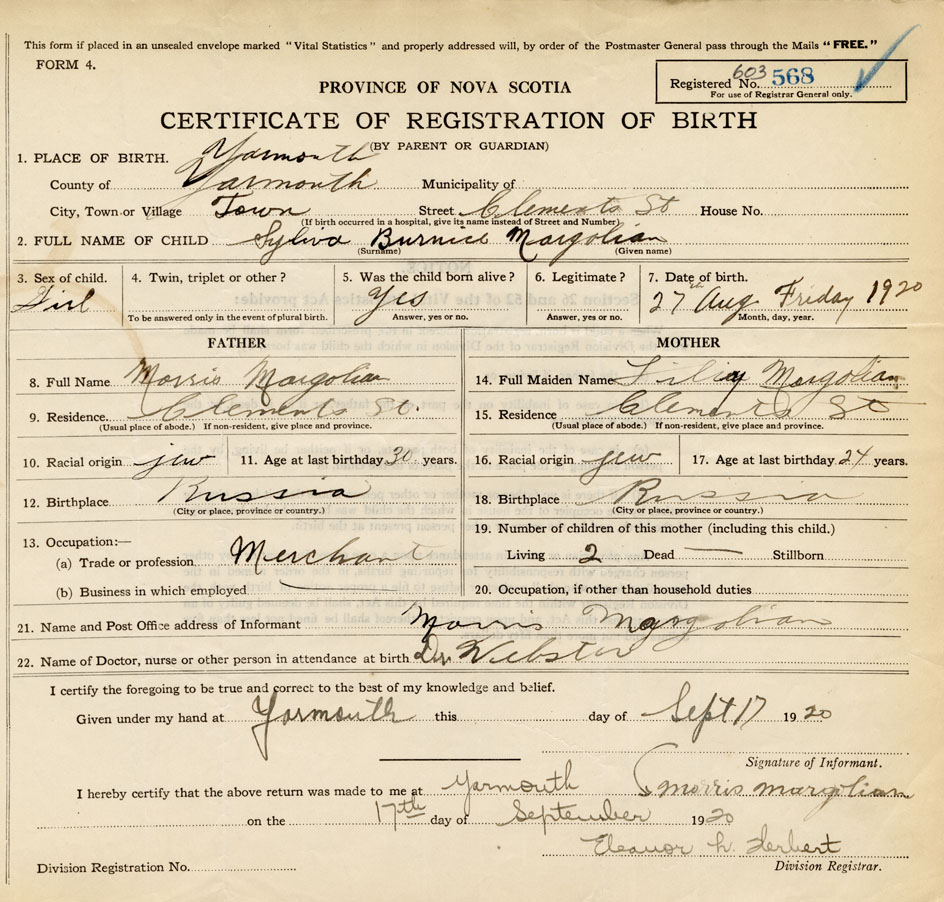 This form if placed in an unsealed envelope marked "Vital Statistics" and properly addressed will, by order of the Postmaster General pass through the Mails "FREE."
FORM 4.
Registered No. 603 568
For use of Registrar General only.
PROVINCE OF NOVA SCOTIA
CERTIFICATE OF REGISTRATION OF BIRTH
(BY PARENT OR GUARDIAN)
1. PLACE OF BIRTH. Yarmouth
County of Yarmouth Municipality of
City, Town or Village Town Street Clements St House No.
(If birth occurred in a hospital, give its name instead of Street and Number)
2. FULL NAME OF CHILD Sylvia Burnice Margolian
(Surname) (Given name)
3. Sex of child. 4. Twin, triplet or other? 5. Was the child born alive? 6. Legitimate? 7. Date of birth.
Girl Yes 27th Aug Friday 1920
To be answered only in the event of plural birth. Answer, yes or no. Answer, yes or no. Month, day, year.
FATHER
8. Full Name Morris Margolian
9. Residence Clements St.
(Usual place of abode.) If non-resident, give place and province.
10. Racial origin jew 11. Age at last birthday 30 years.
12. Birthplace Russia
(City or place, province or country.)
13. Occupation:—
(a) Trade or profession Merchant
(b) Business in which employed —
MOTHER
14. Full Maiden Name Margolian
15. Residence Clements St
(Usual place of abode.) If non-resident, give place and province.
16. Racial origin jew 17. Age at last birthday 24 years.
18. Birthplace Russia
(City or place, province or country.)
19. Number of children of this mother (including this child.)
Living 2 Dead — Stillborn
20. Occupation, if other than household duties
21. Name and Post Office address of Informant Morris Margolian
22. Name of Doctor, nurse or other person in attendance at birth Dr. Webster
I certify the foregoing to be true and correct to the best of my knowledge and belief.
Given under my hand at Yarmouth this day of Sept 17 1920
Signature of Informant.
I hereby certify that the above return was made to me at Yarmouth Morris Margolian
on the 17th day of September 1920
Eleanor h. Herbert
Division Registration No. Division Registrar.